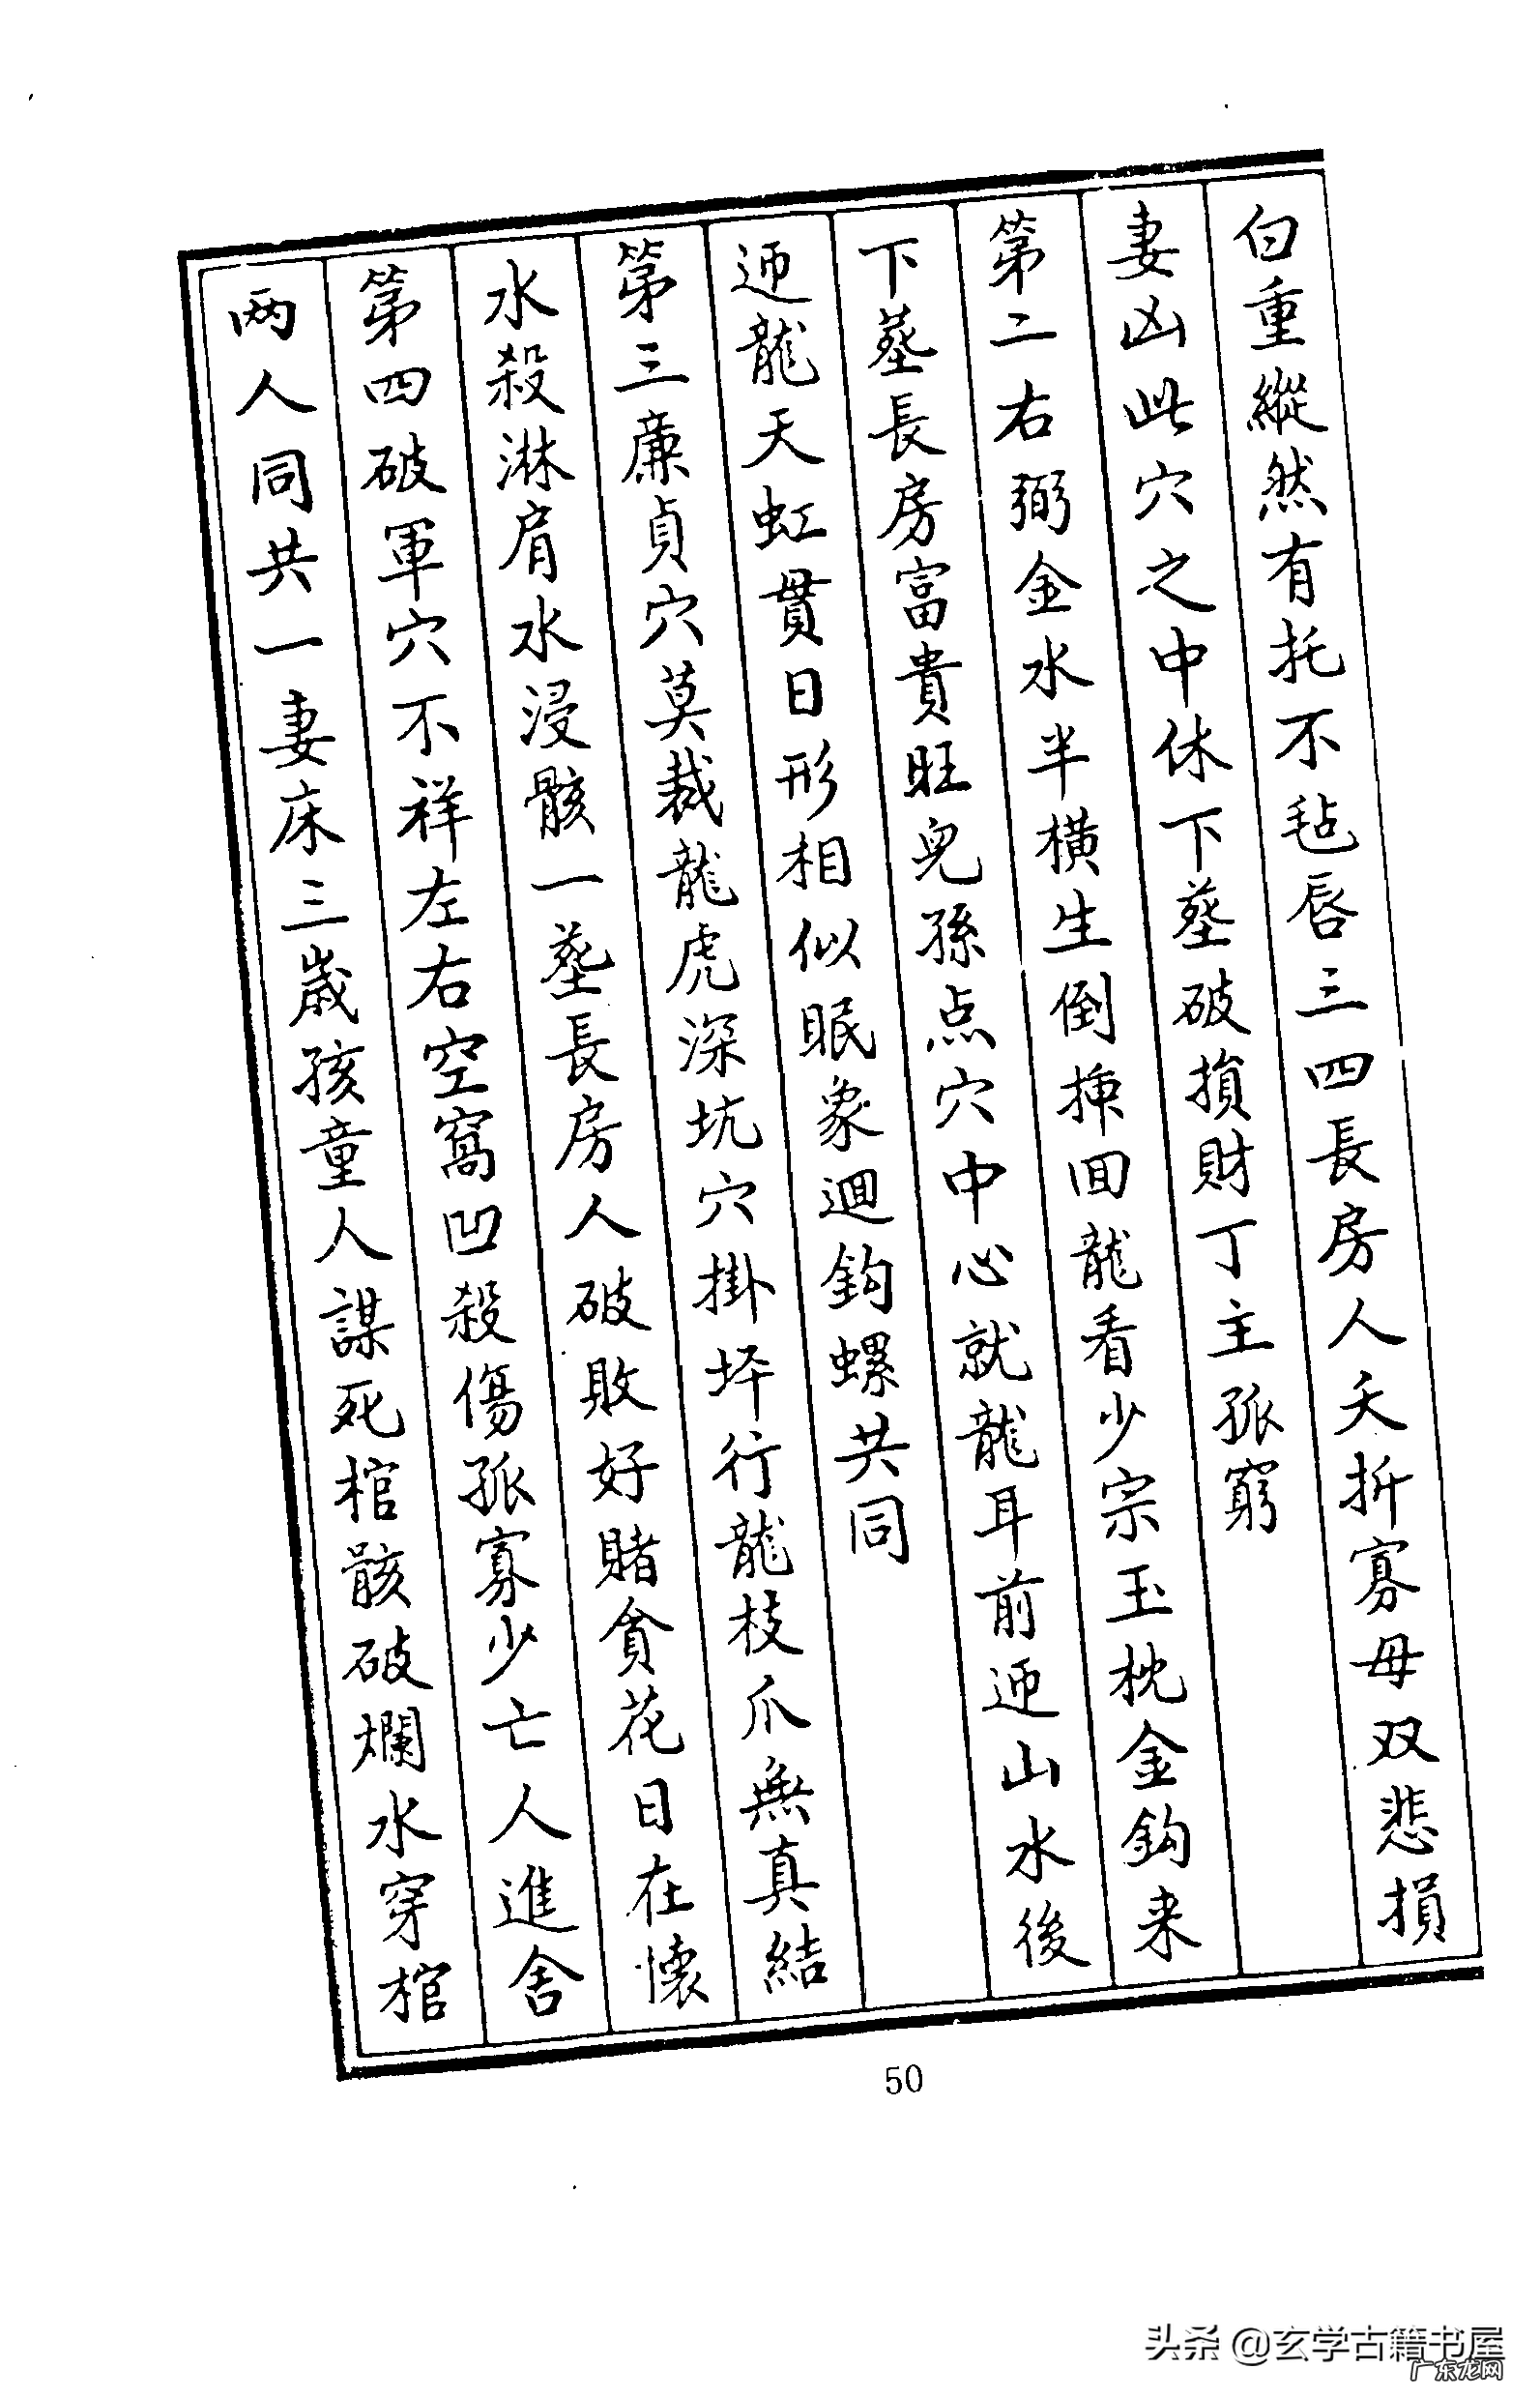 白重縱然有托不毡唇三四長房人夭折寡母双悲損
妻凶此穴之中休下塟破損財丁主孤窮
第二右弼金水半橫生倒揷回龍看少宗玉枕金鈎来
下塟長房富貴旺兒孫点穴中心就龍耳前迊山水後
迊龍天虹貫日形相似眠象迴鈎螺共同
第三廉貞穴莫裁龍虎深坑穴掛坪行龍枝爪無真結
水殺淋肩水浸骸一塟長房人破敗好賭貪花日在懷
第四破軍穴不祥左右空窩凹殺傷孤寡少亡人進舍
两人同共一妻床三歲孩童人謀死棺骸破爛水穿棺
50
头条 @玄学古籍书屋
广东龙网